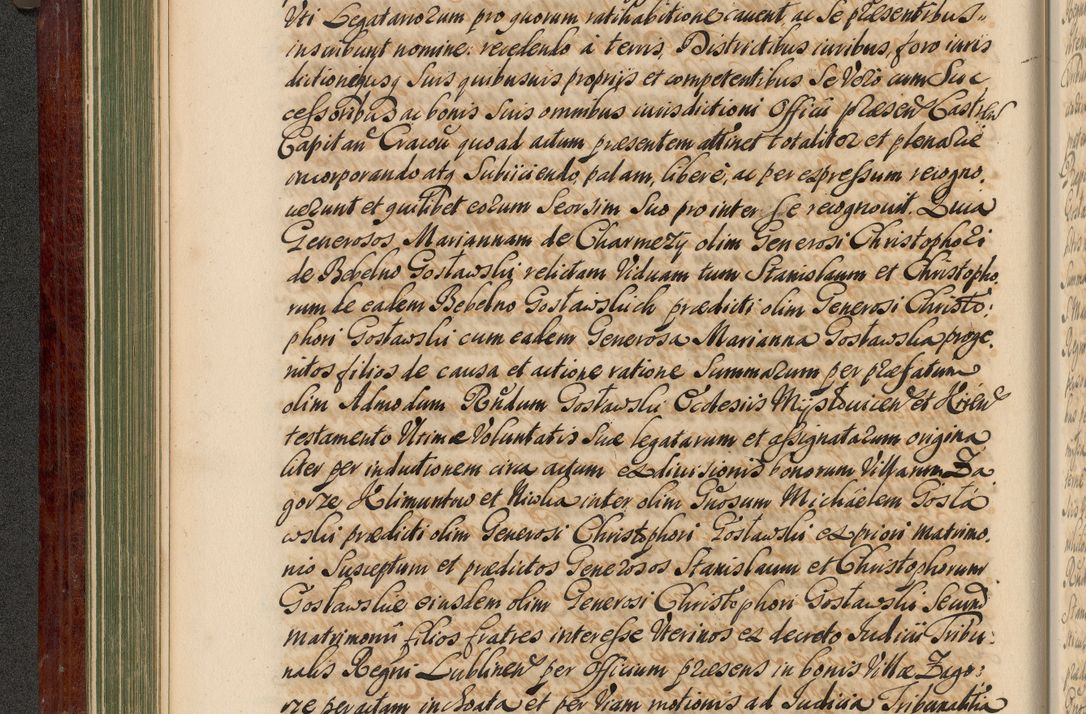 Uti Legatariorum pro quorum ratihabitione cavent ac se præsentibus
inscribunt nomine, recedendo à terris, Districtibus iuribus, foro iuris
dictionequsq suis quibusuis proprijs et competentibus se Vero cum Suc
cessoribus ac bonis suis omnibus iurisdictioni Officii præsen Castren
Capitan Cracou quo ad actum præsentem attinet totaliter et plenarie
incorporando atq Subiiciendo, palam, liberè, ac per expressum recogno,
uerunt et quilibet eorum Seorsim Suo pro interesse recognouit. Quia
Generosos Mariannam de Charmezy olim Generosi Christophori
de Bebelno Gosławski relictam Viduam tum Stanislaum et Christopho,
rum de eadem Bebelno Gosławskich prædicti olim Generosi Christo:
phori Gosławski cum eadem Generosa Marianna Gosławska proge,
nitos filios de causa et actione ratione Summarum per præfatum
olim Admodum Rndum Gosławski Ecclesiis Mysłouicen et
testamento Ultimæ Voluntatis Suæ legatarum et assignatarum origina
liter per inductionem circa actum exdiuisionis bonorum Villarum Za
gorze Klimuntow et Niwka inter olim Gnosum Michaelem Gosła
wski prædicti olim Generosi Christophori Gosławski ex priori matrimo,
nio Susceptum et prædictos Generosos Stanislaum et Christophorum
Gosławskie eiusdem olim Generosi Christophori Gosławski secundi
matrimonii filios fratres interesse Uterinos ex decreto Iudicii Tribu:
nalis Regni Lublinen per Officium præsens in bonis Villæ Zago:
rze peractam inchoata et per Viam motionis ad Iudicia Tribunalitia